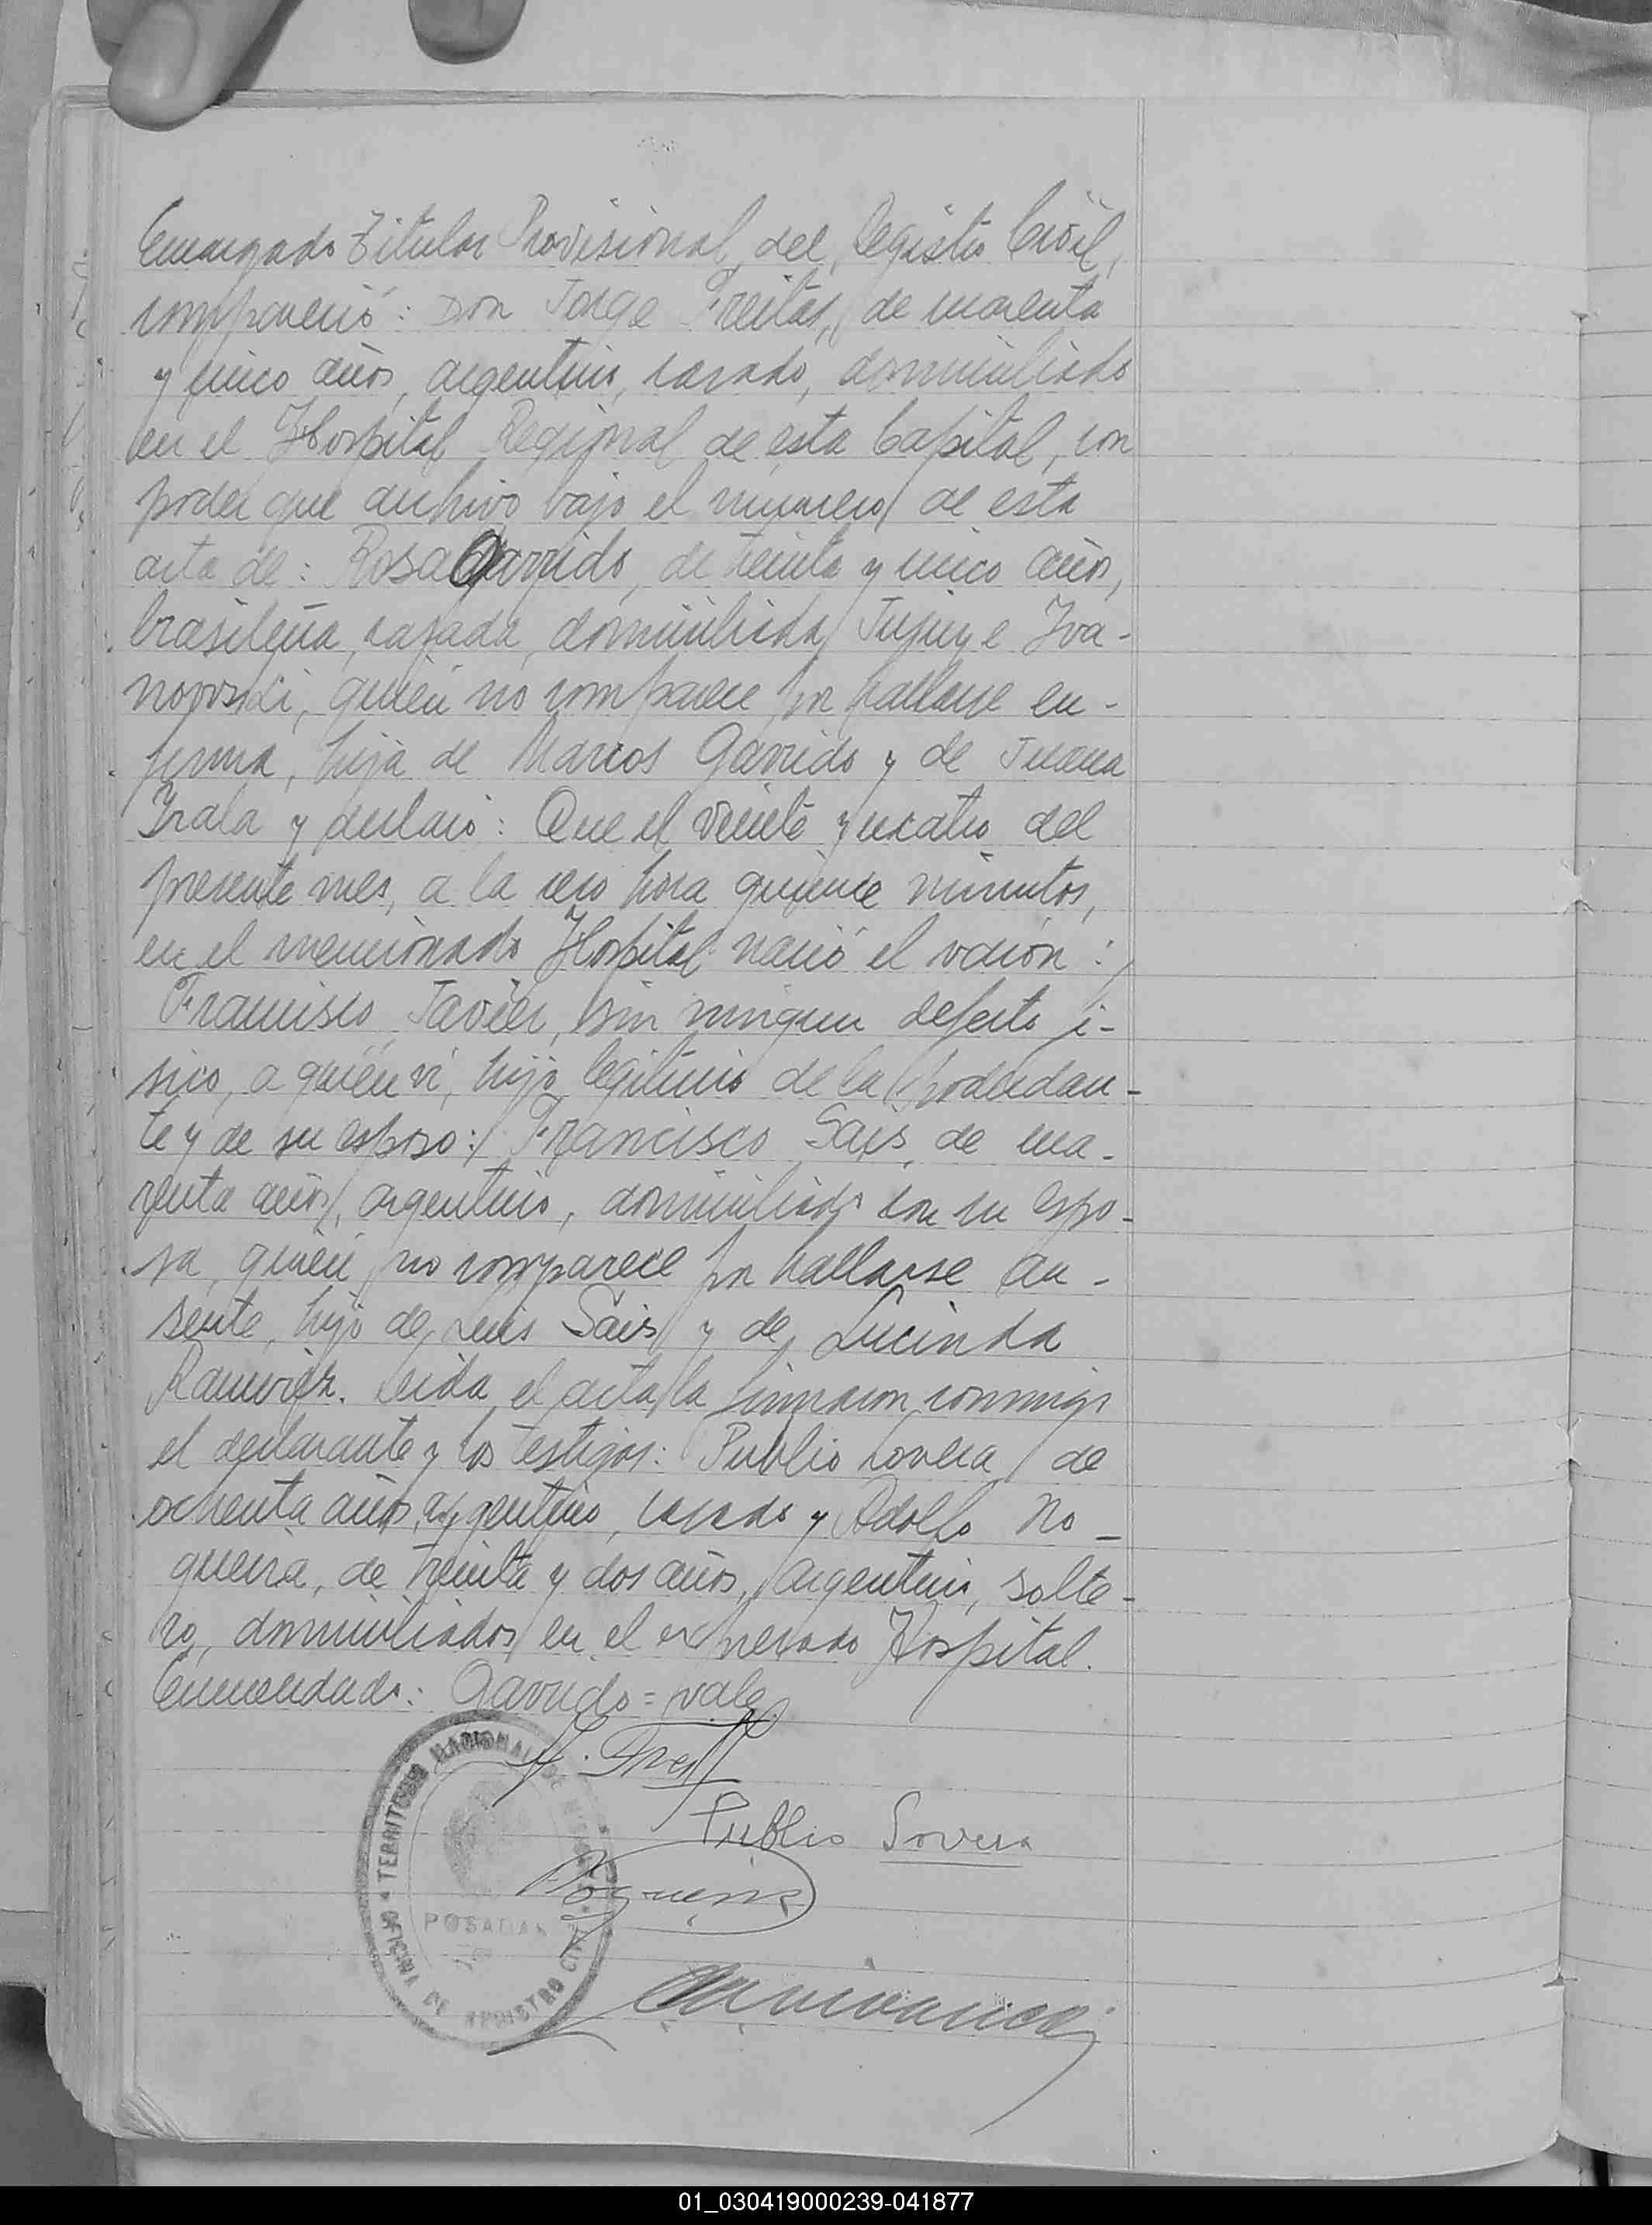 Encargado Titular Provisional del Registro Civil,
compareció: Don Jorge Freitas, de cuarenta
y cinco años, argentino, casado, domiciliado
en el Hospital Regional de esta Capital, con
poder que archivo bajo el número de esta
acta de: Rosa Garrido, de treinta y cinco años,
brasileña, casada, domiciliada Jujuy e Iva-
nowski, quién no comparece por hallarse en-
ferma, hija de Marcos Garrido y de Juana
Irala y declaró: Que el veinte y cuatro del
presente mes, a la cero hora quince minutos,
en el mencionado Hospital nació el varón:
Francisco Javier, sin ningun defecto fi-
sico, a quién ví, hijo legítimo de la poderdan-
te y de su esposo: Francisco Sais, de cua-
renta años, argentino, domiciliado con su espo-
sa, quién no comparece por hallarse au-
sente, hijo de Luis Sais y de Lucinda
Ramirez. Leida el acta la firmaron conmigo
el declarante y los testigos: Publio Lovera de
ochenta años, argentino, casado y Adolfo No-
gueira, de treinta y dos años, argentino, solte-
ro, domiciliados en el expresado Hospital.
Enmendado: Garrido = vale
TERRITORIO NACIONAL DE MISIONES
Publio Lovera
Nogueira
POSADAS
OFICINA DE REGISTRO CIVIL
01_030419000239-041877